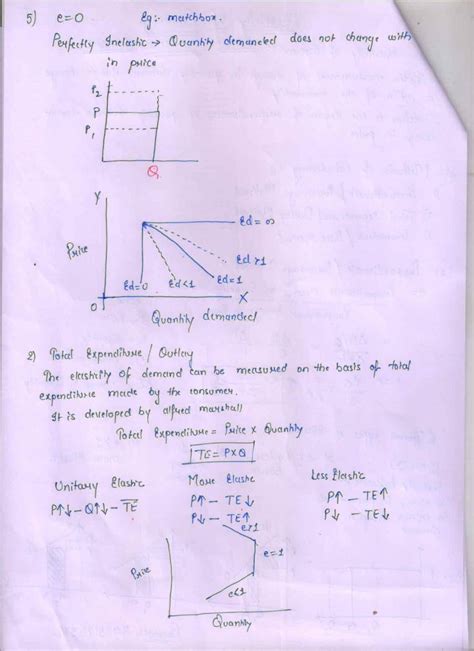 5) e=0 Eg:- matchbox.
Perfectly Inelastic → Quantity demanded does not change with
in price
P2
P
P1
Q
Y
Ed=∞
Price
Ed>1
Ed=0 Ed<1 Ed=1
O X
Quantity demanded
2) Total Expenditure / Outlay
The elasticity of demand can be measured on the basis of total
expenditure made by the consumer.
It is developed by alfred marshall
Total Expenditure = Price x Quantity
TE = PXQ
Unitary Elastic More Elastic Less Elastic
P↑↓ - Q↑↓ - TE P↑ - TE↓ P↑ - TE↑
P↓ - TE↑ P↓ - TE↓
e>1
Price e=1
e<1
Quantity